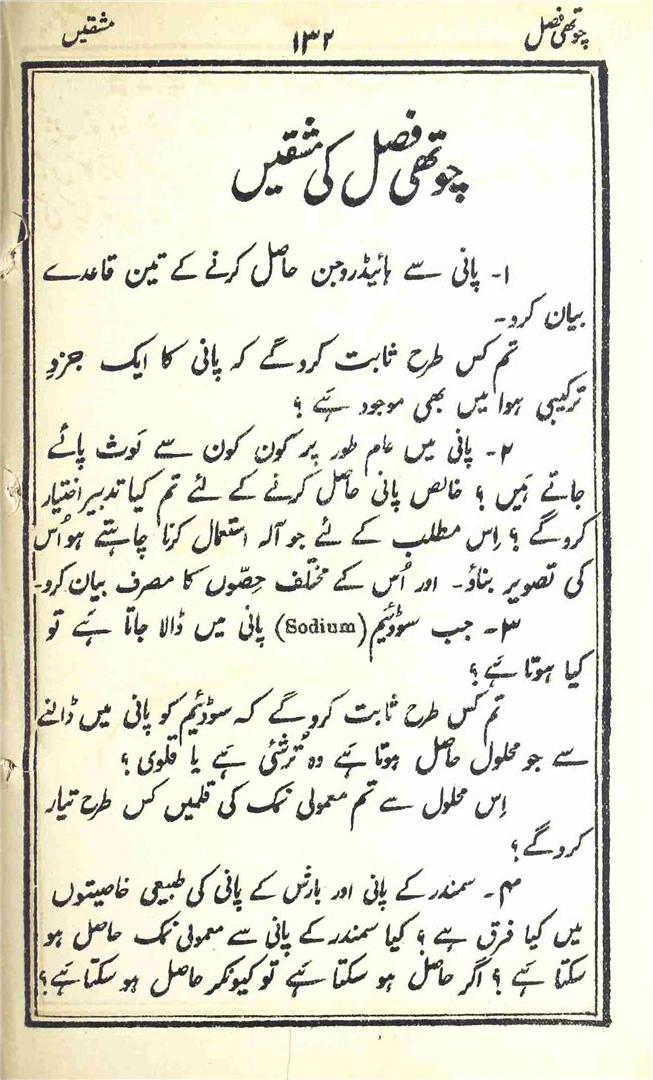 چوتھی فصل
۱۳۲
مشقیں
چوتھی فصل کی مشقیں
۱۔ پانی سے ہائیڈروجن حاصل کرنے کے تین قاعدے
بیان کرو۔
تم کس طرح ثابت کروگے کہ پانی کا ایک جزوِ
ترکیبی ہوا میں بھی موجود ہَے ؟
۲۔ پانی میں عام طور پر کون کون سے لَوث پائے
جاتے ہَیں ؟ خالص پانی حاصل کرنے کے لئے تم کیا تدبیر اختیار
کروگے ؟ اِس مطلب کے لئے جو آلہ استعمال کرنا چاہتے ہو اُس
کی تصویر بناؤ۔ اور اُس کے مختلف حِصّوں کا مصرف بیان کرو۔
۳۔ جب سوڈیئم (Sodium) پانی میں ڈالا جاتا ہَے تو
کیا ہوتا ہَے ؟
تم کس طرح ثابت کروگے کہ سوڈیئم کو پانی میں ڈالنے
سے جو محلول حاصل ہوتا ہے وہ تُرشئی ہے یا قلوی ؟
اِس محلول سے تم معمولی نمک کی قلمیں کس طرح تیار
کروگے ؟
۴۔ سمندر کے پانی اور بارش کے پانی کی طبیعی خاصیتوں
میں کیا فرق ہے ؟ کیا سمندر کے پانی سے معمولی نمک حاصل ہو
سکتا ہَے ؟ اگر حاصل ہو سکتا ہَے تو کیونکر حاصل ہو سکتا ہَے ؟